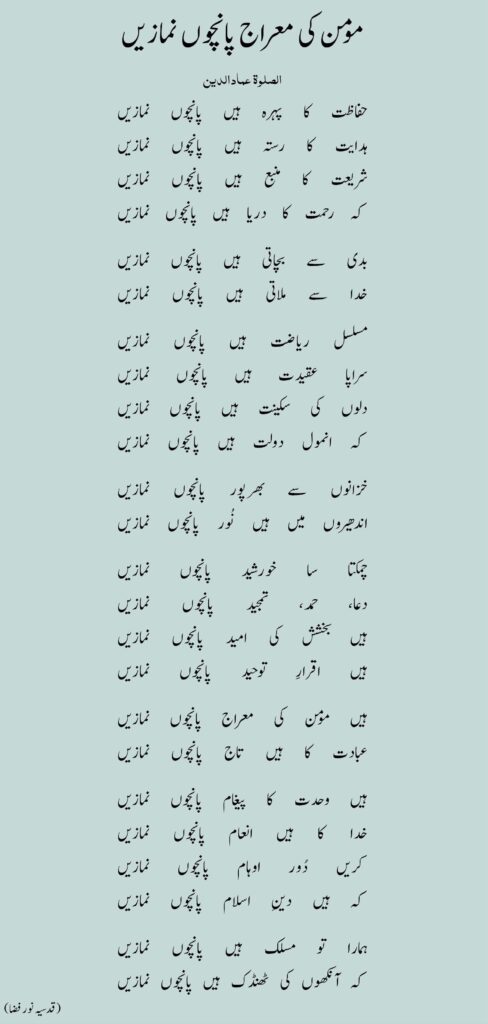 مؤمن کی معراج پانچوں نمازیں
الصلوۃ عمادالدین
حفاظت کا پہرہ ہیں پانچوں نمازیں
ہدایت کا رستہ ہیں پانچوں نمازیں
شریعت کا منبع ہیں پانچوں نمازیں
کہ رحمت کا دریا ہیں پانچوں نمازیں
بدی سے بچاتی ہیں پانچوں نمازیں
خدا سے ملاتی ہیں پانچوں نمازیں
مسلسل ریاضت ہیں پانچوں نمازیں
سراپا عقیدت ہیں پانچوں نمازیں
دلوں کی سکینت ہیں پانچوں نمازیں
کہ انمول دولت ہیں پانچوں نمازیں
خزانوں سے بھرپور پانچوں نمازیں
اندھیروں میں ہیں نُور پانچوں نمازیں
چمکتا سا خورشید پانچوں نمازیں
دعا، حمد، تمجید پانچوں نمازیں
ہیں بخشش کی امید پانچوں نمازیں
ہیں اقرارِ توحید پانچوں نمازیں
ہیں مؤمن کی معراج پانچوں نمازیں
عبادت کا ہیں تاج پانچوں نمازیں
ہیں وحدت کا پیغام پانچوں نمازیں
خدا کا ہیں انعام پانچوں نمازیں
کریں دُور اوہام پانچوں نمازیں
کہ ہیں دینِ اسلام پانچوں نمازیں
ہمارا تو مسلک ہیں پانچوں نمازیں
کہ آنکھوں کی ٹھنڈک ہیں پانچوں نمازیں
(قدسیہ نور فضا)